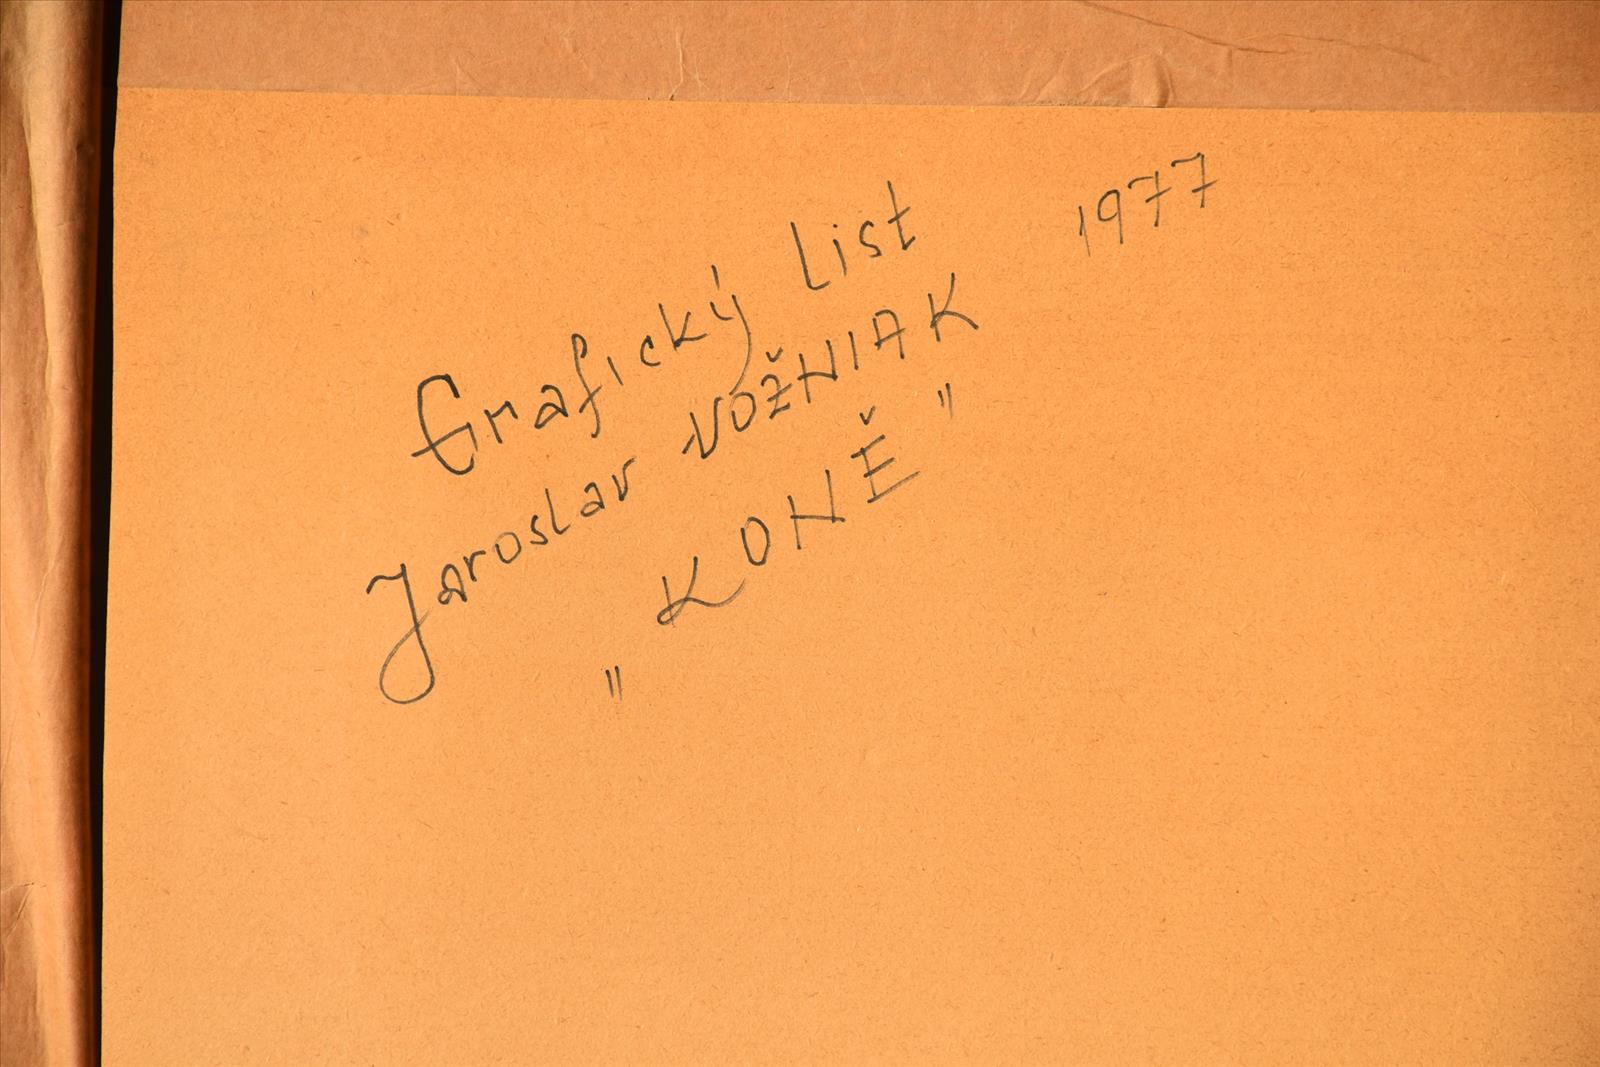 Grafický list 1977
Jaroslav VOŽNIAK
" KONĚ "